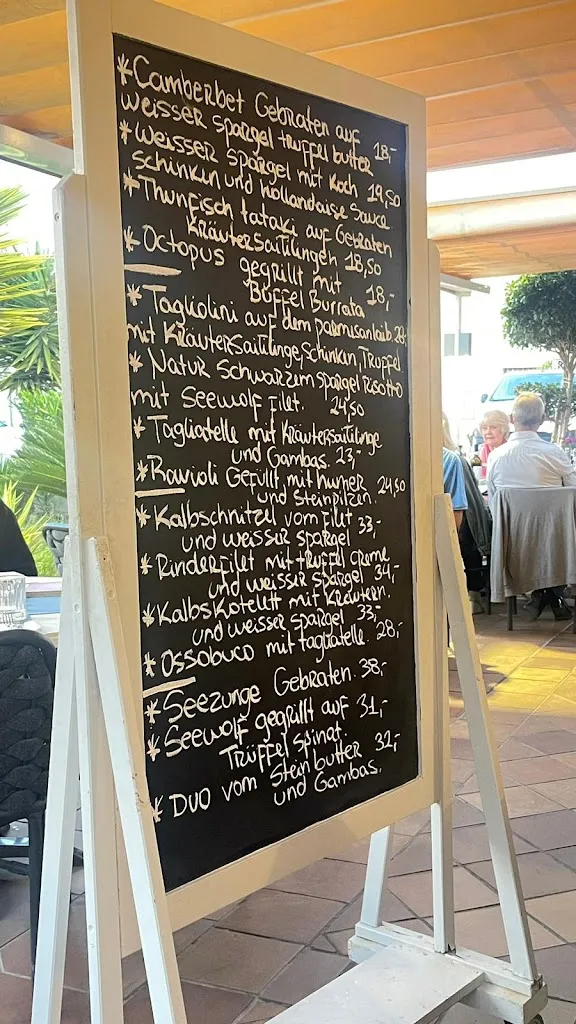 *Camberbet Gebraten auf 18,-
weisser spargel trüffel butter
*weisser spargel mit Koch 19,50
schinken und hollandaise Sauce
*Thunfisch tataki auf Gebraten
Kräutersaitilingen 18,50
*Octopus gegrillt mit 18,-
Büffel Burrata
*Tagliolini auf dem parmisanlaib 28,-
mit Kräutersaitilinge, Schinken, Trüffel
*Natur Schwarzem Spargel Risotto
mit Seewolf Filet. 24,50
*Tagliatelle mit Kräutersaitilinge
und Gambas. 23,-
*Ravioli Gefüllt mit humer 24,50
und Steinpilzen.
*Kalbschnitzel vom Filet 33,-
und weisser spargel
*Rinderfilet mit trüffel creme
und weisser spargel 34,-
*Kalbskotelett mit Kräutern.
und weisser spargel 33,-
*Ossobuco mit tagliatelle. 28,-
*Seezunge Gebraten. 38,-
*Seewolf gegrillt auf 31,-
Trüffel Spinat.
*Duo vom Steinbutter 32,-
und Gambas.